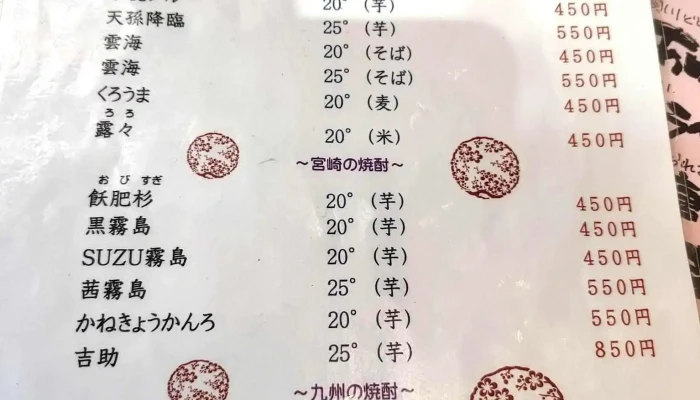 20°（芋） 450円
天孫降臨 25°（芋） 550円
雲海 20°（そば） 450円
雲海 25°（そば） 550円
くろうま 20°（麦） 450円
ろ ろ
露々 20°（米） 450円
～宮崎の焼酎～
お び すぎ
飫肥杉 20°（芋） 450円
黒霧島 20°（芋） 450円
SUZU霧島 20°（芋） 450円
茜霧島 25°（芋） 550円
かねきょうかんろ 20°（芋） 550円
吉助 25°（芋） 850円
～九州の焼酎～